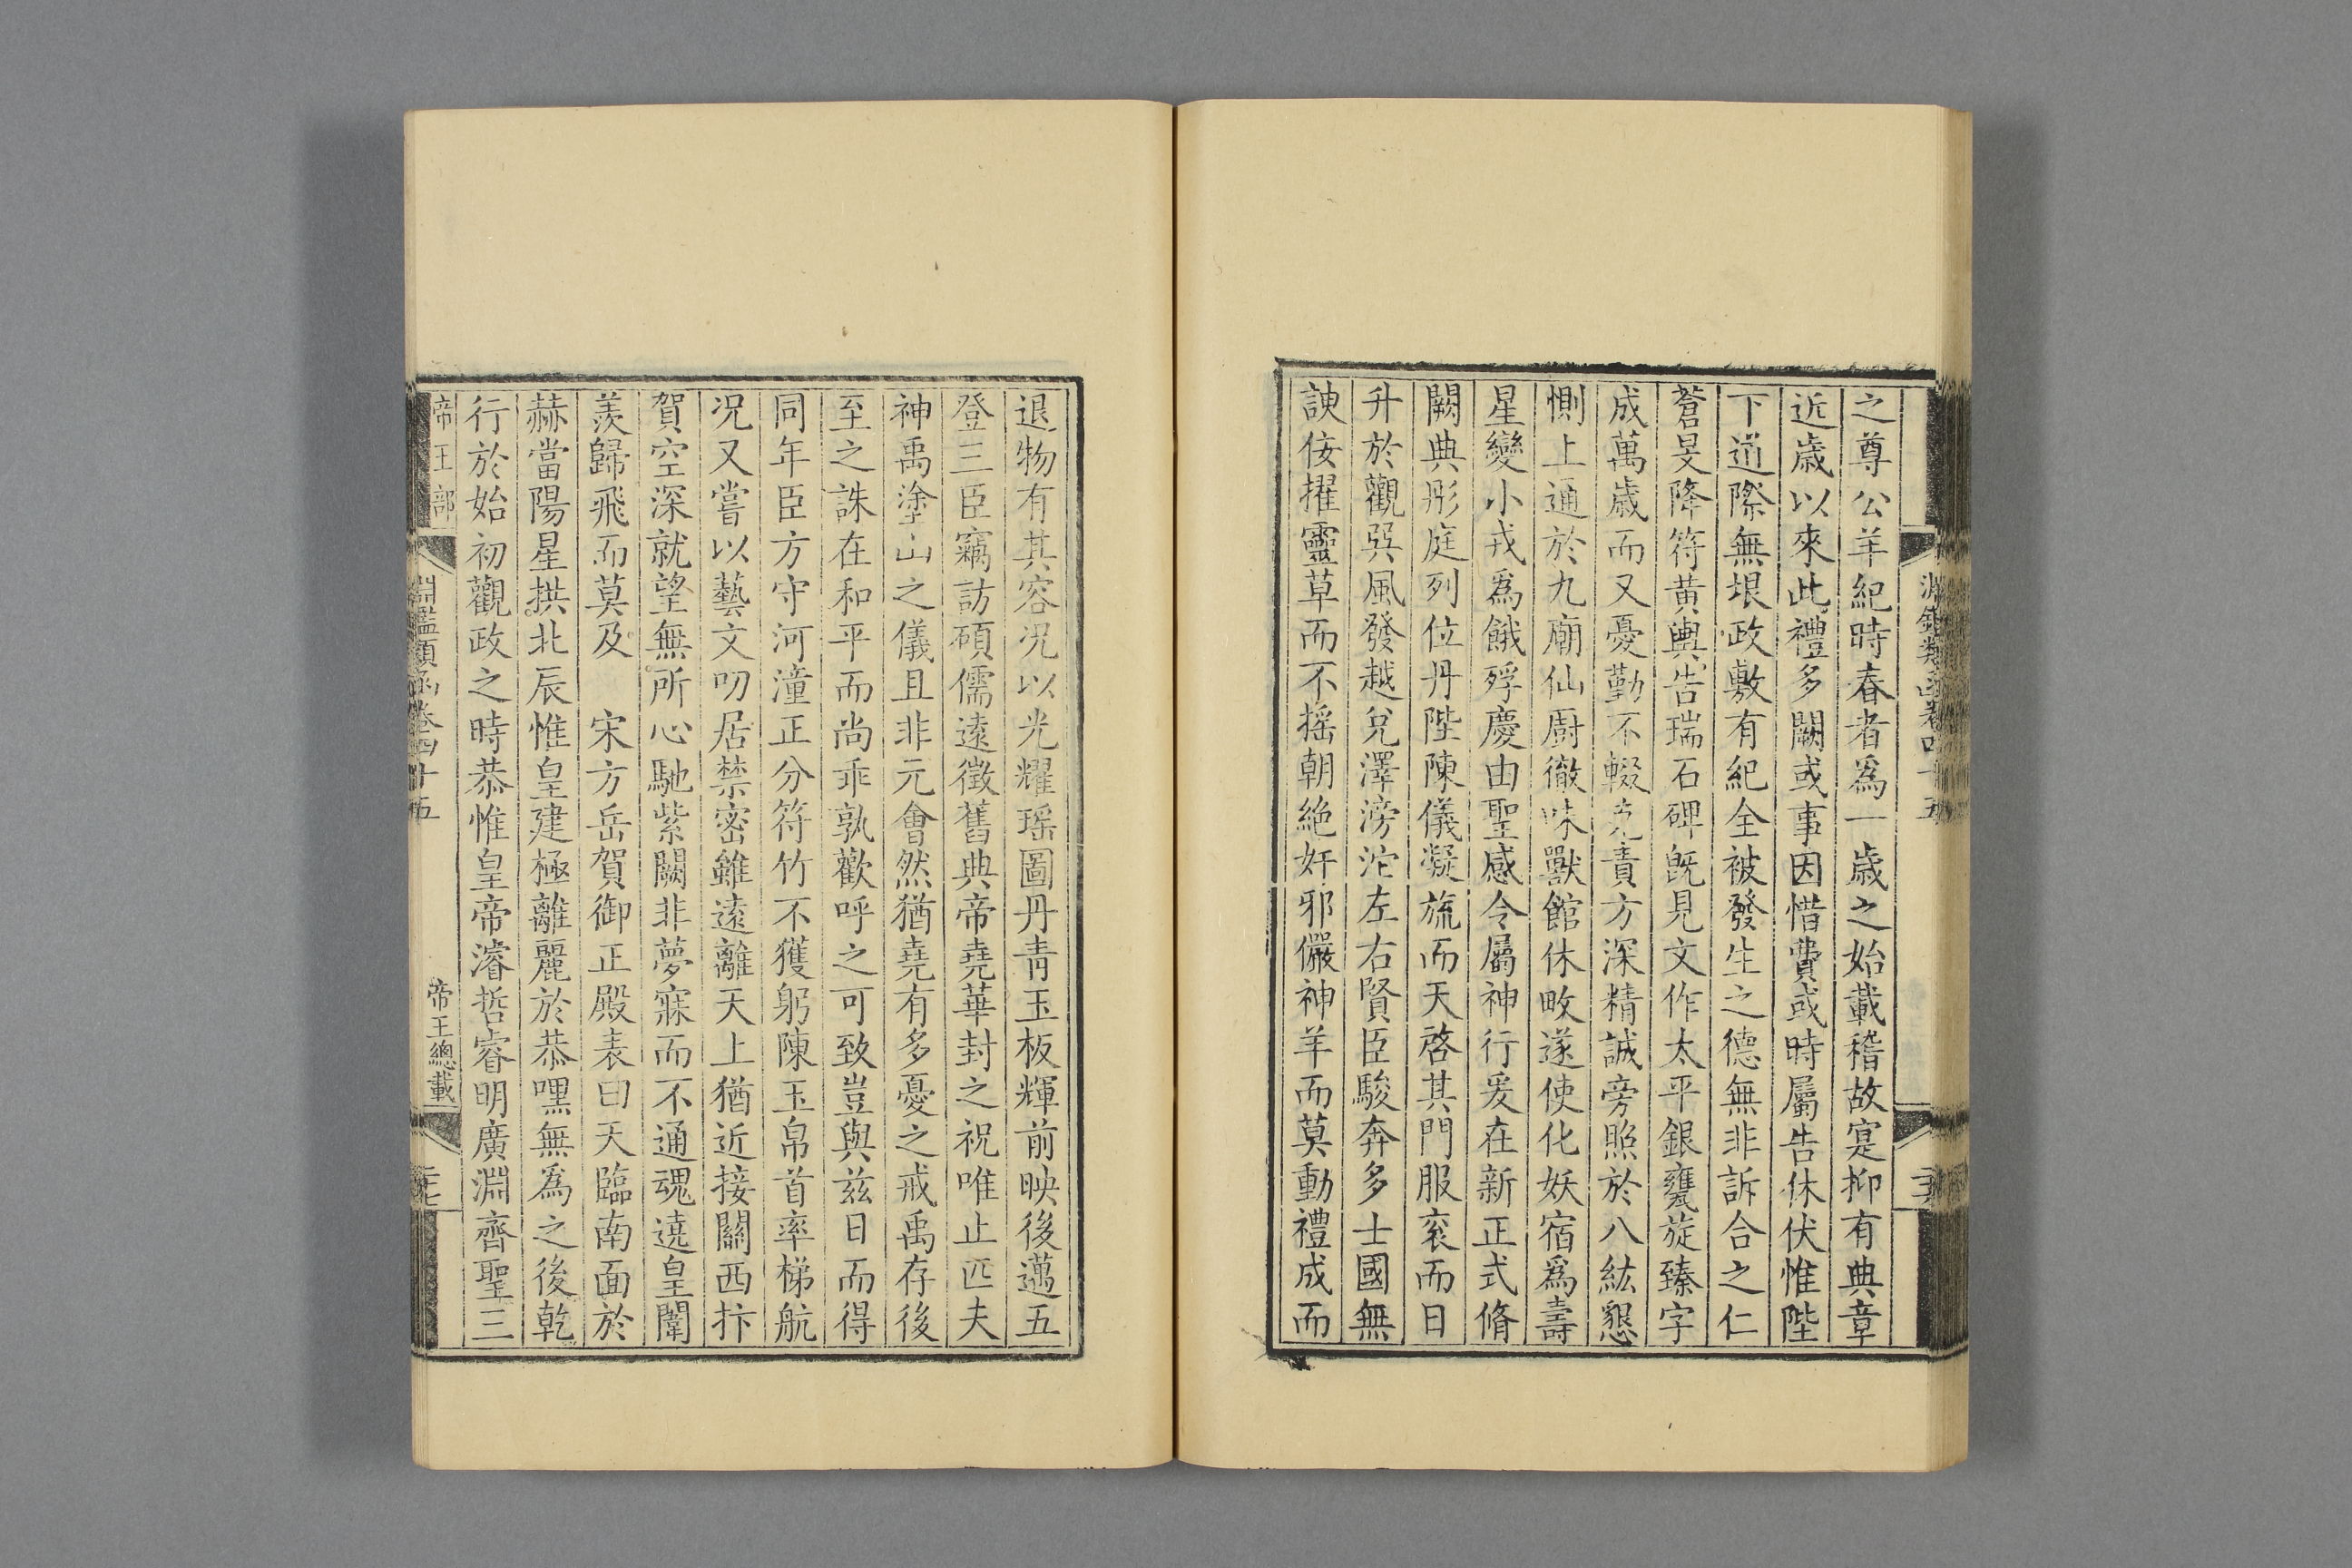 之尊公羊紀時春者爲一歲之始載稽故寔抑有典章
近歲以來此禮多闕或事因惜費或時屬告休伏惟陛
下道際無垠政敷有紀全被發生之德無非訴合之仁
蒼旻降符黄輿告瑞石碑旣見文作太平銀甕旋臻字
成萬歲而又憂勤不輟克責方深精誠旁照於八紘懇
惻上通於九廟仙厨徹味獸館休畋遂使化妖宿爲壽
星變小戎爲餓殍慶由聖感令屬神行爰在新正式脩
闕典彤庭列位丹陛陳儀凝旒而天啓其門服衮而日
升於觀巽風發越兌澤滂沱左右賢臣駿奔多士國無
諛佞擢靈草而不摇朝絶奸邪儼神羊而莫動禮成而
退物有其容况以光耀瑶圖丹青玉板輝前映後邁五
登三臣竊訪碩儒遠徵舊典帝堯華封之祝唯止匹夫
神禹塗山之儀且非元會然猶堯有多憂之戒禹存後
至之誅在和平而尚乖孰歡呼之可致豈與兹日而得
同年臣方守河潼正分符竹不獲躬陳玉帛首率梯航
况又嘗以藝文叨居禁密雖遠離天上猶近接關西抃
賀空深就望無所心馳紫闕非夢寐而不通魂遶皇闈
羨歸飛而莫及　宋方岳賀御正殿表曰天臨南面於
赫當陽星拱北辰惟皇建極離麗於恭嘿無爲之後乾
行於始初觀政之時恭惟皇帝濬哲睿明廣淵齊聖三
帝王部
淵鑑類函卷四十五
帝王總載
二七